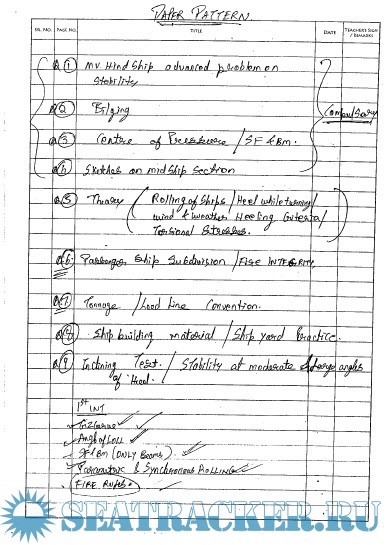 PAPER PATTERN
SR. NO. PAGE NO. TITLE DATE TEACHER'S SIGN / REMARKS
Q(1) M.V. Hindship advanced problem on
Stability
Q(2) Bilging
Compulsory
Q(3) Centre of Pressure / SF & Bm.
Q(4) Sketches on midship section
Q(5) Theory (Rolling of Ships / Heel while turning /
wind & weather Heeling Criteria /
Torsional Stresses.)
Q(6) Passenger Ship Subdivision / FIRE INTEGRITY.
Q(7) Tonnage / Load Line Convention.
Q(8) Ship building material / Ship yard Practice.
Q(9) Inclining Test. / Stability at moderate & large angles
of Heel.
1st INT
Angle of LOLL
SF & Bm (ONLY Beams).
& Synchronous ROLLING
FIRE RULES.
SEATRACKER.RU